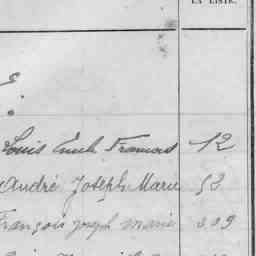 LA LISTE.
Louis Emile François 12
André Joseph Marie 53
François joseph marie 309